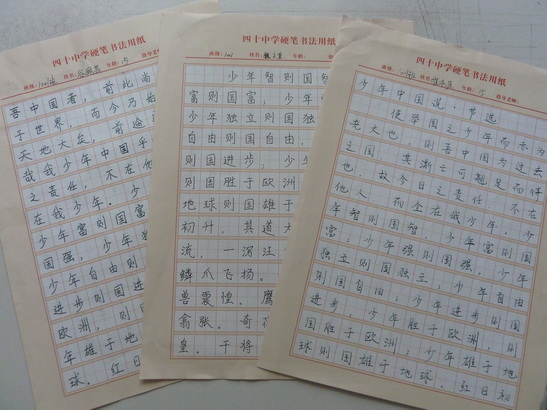 四十中学硬笔书法用纸
班级: 姓名: 年龄: 15 指导老师:
吾中国者，前此尚
于世界，而今乃始
天地大矣，前途
哉我少年中国乎
之责任，不在他
在我少年。少
少年富则国富
国强，少年独
少年自由则
进步则国进
欧洲，则
年雄于地
球。红日
四十中学硬笔书法用纸
班级: 姓名: 年龄: 指导老师:
少年智则国智
富则国富，少年
少年独立则国独
自由则国自由，
则国进步，少
则国胜于欧洲
地球则国雄于
初升，其道大
流，一泻汪
鳞爪飞扬。
兽震惶。鹰
翕张。奇花
皇。干将
四十中学硬笔书法用纸
班级: 姓名: 年龄: 15 指导老师:
少年中国说·节选
使举国之少年而亦为
老大也，则吾中国为过去
之国，其澌亡可翘足而待
也。故今日之责任，不在
他人，而全在我少年。少
年智则国智，少年富则国
富；少年强则国强，少年
独立则国独立；少年自由
则国自由；少年进步则国
进步；少年胜于欧洲，则
国胜于欧洲；少年雄于地
球则国雄于地球。红日初